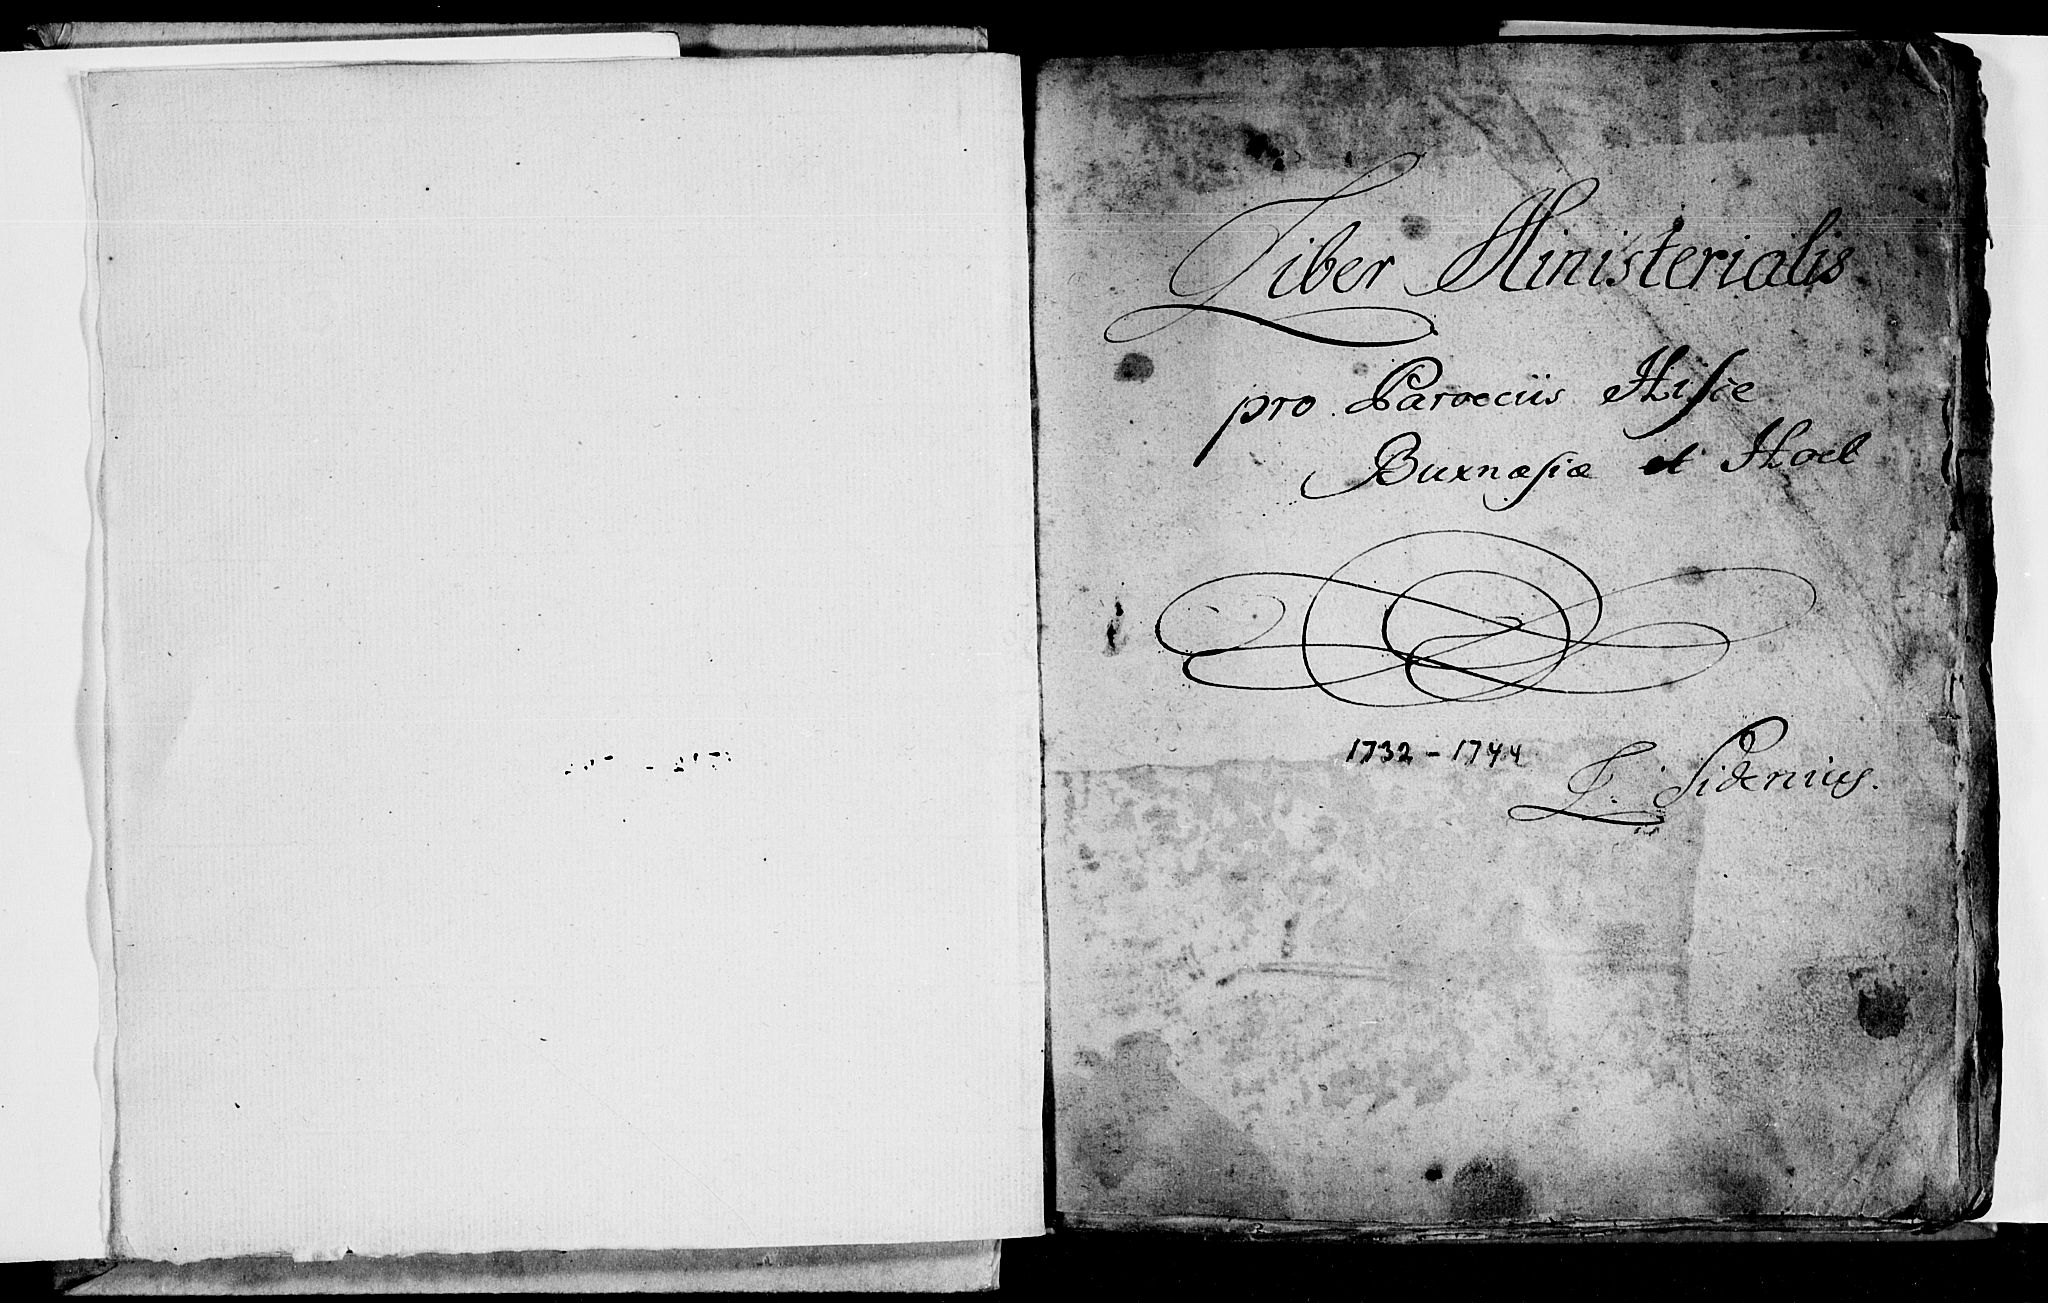 Liber Ministerialis
pro Paroeciis Hisie
Buxnæsiæ et Hoel
1732 - 1744
L. Sidenius.